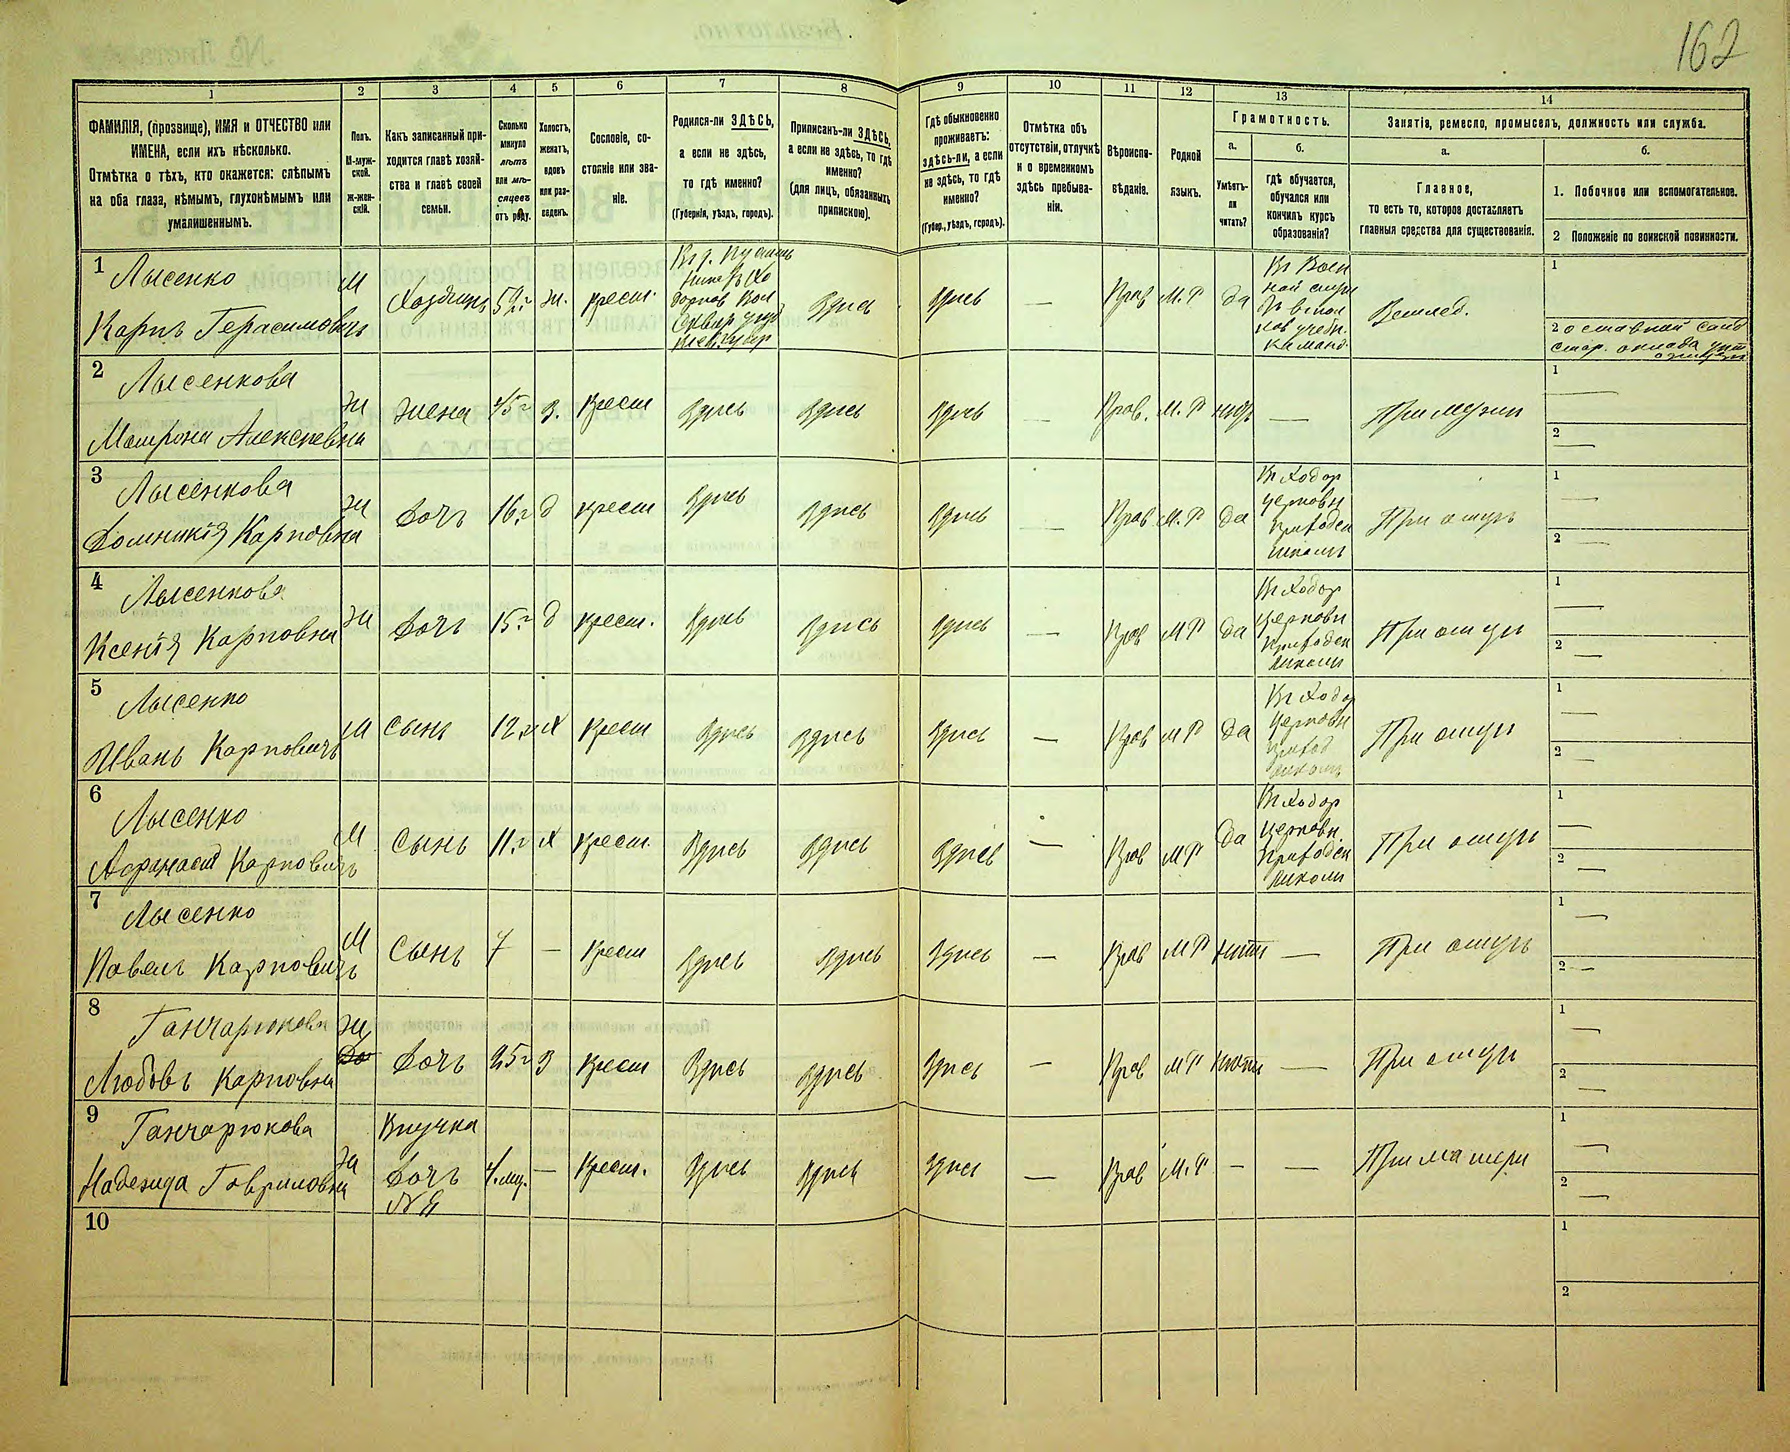 162
1
2
3
4
5
6
7
8
9
10
11
12
13
14
ФАМИЛІЯ, (прозвище), ИМЯ и ОТЧЕСТВО или
ИМЕНА, если ихъ нѣсколько.
Отмѣтка о тѣхъ, кто окажется: слѣпымъ
на оба глаза, нѣмымъ, глухонѣмымъ или
умалишеннымъ.
Полъ.
М-муж-
ской.
Ж-жен-
скій.
Какъ записанный при-
ходится главѣ хозяй-
ства и главѣ своей
семьи.
Сколько
минуло
лѣтъ
или мѣ-
сяцевъ
отъ роду.
Холостъ,
женатъ,
вдовъ
или раз-
веденъ.
Сословіе, со-
стояніе или зва-
ніе.
Родился-ли ЗДѢСЬ,
а если не здѣсь,
то гдѣ именно?
(Губернія, уѣздъ, городъ).
Приписанъ-ли ЗДѢСЬ,
а если не здѣсь, то гдѣ
именно?
(для лицъ, обязанныхъ
припискою).
Гдѣ обыкновенно
проживаетъ:
здѣсь-ли, а если
не здѣсь, то гдѣ
именно?
(Губер., уѣздъ, городъ).
Отмѣтка объ
отсутствіи, отлучкѣ
и о временномъ
здѣсь пребыва-
ніи.
Вѣроиспо-
вѣданіе.
Родной
языкъ.
Грамотность.
а.
Умѣетъ-
ли
читать?
б.
гдѣ обучается,
обучался или
кончилъ курсъ
образованія?
Занятія, ремесло, промыселъ, должность или служба.
а.
Главное,
то есть то, которое доставляетъ
главныя средства для существованія.
б.
1. Побочное или вспомогательное.
2 Положеніе по воинской повинности.
1
Лысенко
Карпъ Герасимовичъ
М
Хозяинъ
ж.
крест.
Здѣсь
Здѣсь
—
Прав
М. Р
да
Землед.
1
2
2
Лысенкова
Матрона Алексѣевна
Ж
Жена
45 г
з.
Крест
Здѣсь
Здѣсь
Здѣсь
Прав.
М. Р
—
При мужи
1
—
2
—
3
Лысенкова
Домникія Карповна
Ж
Дочь
16 г
д
крест
Здѣсь
Здѣсь
Здѣсь
—
Прав
М. Р
да
При отцѣ
1
—
2
—
4
Лысенкова
Ксенія Карповна
Ж
Дочь
15 г
д
крест.
Здѣсь
Здѣсь
Здѣсь
—
Прав
М Р
да
При отцѣ
1
—
2
—
5
Лысенко
Иванъ Карповичъ
М
Сынъ
12 г
х
Крест
Здѣсь
Здѣсь
Здѣсь
—
Прав
М Р
да
При отцѣ
1
—
2
—
6
Лысенко
Афанасій Карповичъ
М
Сынъ
11 г
х
Крест
Здѣсь
Здѣсь
Здѣсь
—
Прав
М Р
да
При отцѣ
1
—
2
—
7
Лысенко
Павелъ Карповичъ
М
Сынъ
7
—
Крест
Здѣсь
Здѣсь
Здѣсь
—
Прав
М Р
нѣтъ
—
При отцѣ
1
—
2 —
8
Ганчарюкова
Любовь Карповна
Ж
Дочь
25 г
з
Крест
Здѣсь
Здѣсь
Здѣсь
—
Прав
М Р
нѣтъ
—
При отцѣ
1
—
2
—
9
Ганчарюкова
Надежда Гавриловна
Ж
Внучка
Дочь
№ 8
4 мѣ.
—
Крест.
Здѣсь
Здѣсь
Здѣсь
—
Прав
М. Р
—
—
При матери
1
—
2
—
10
1
2